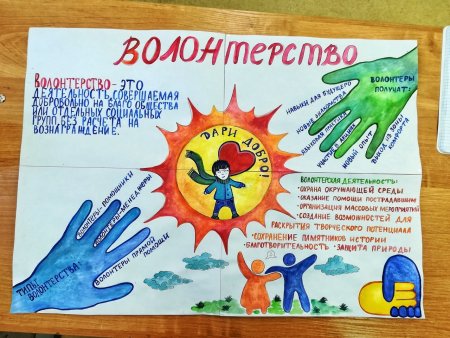 ВОЛОНТЕРСТВО
ВОЛОНТЕРСТВО-ЭТО
ДЕЯТЕЛЬНОСТЬ, СОВЕРШАЕМАЯ
ДОБРОВОЛЬНО НА БЛАГО ОБЩЕСТВА
ИЛИ ОТДЕЛЬНЫХ СОЦИАЛЬНЫХ
ГРУПП, БЕЗ РАСЧЕТА НА
ВОЗНАГРАЖДЕНИЕ.
ВОЛОНТЕРЫ
ПОЛУЧАТ:
НАВЫКИ ДЛЯ БУДУЩЕГО
НОВЫЕ ЗНАКОМСТВА
ЯЗЫКОВАЯ ПРАКТИКА
НОВЫЙ ОПЫТ
ВЫХОД ИЗ ЗОНЫ
КОМФОРТА
ДАРИ ДОБРО!
ТИПЫ
ВОЛОНТЕРСТВА
ВОЛОНТЕРЫ-ПОМОЩНИКИ
ВОЛОНТЕРЫ-МЕНЕДЖЕРЫ
ВОЛОНТЕРЫ ПРЯМОЙ
ПОМОЩИ
ВОЛОНТЕРСКАЯ ДЕЯТЕЛЬНОСТЬ:
• ОХРАНА ОКРУЖАЮЩЕЙ СРЕДЫ
• ОКАЗАНИЕ ПОМОЩИ ПОСТРАДАВШИМ
• ОРГАНИЗАЦИЯ МАССОВЫХ МЕРОПРИЯТИЙ
• СОЗДАНИЕ ВОЗМОЖНОСТЕЙ ДЛЯ
РАСКРЫТИЯ ТВОРЧЕСКОГО ПОТЕНЦИАЛА
• СОХРАНЕНИЕ ПАМЯТНИКОВ ИСТОРИИ
• БЛАГОТВОРИТЕЛЬНОСТЬ • ЗАЩИТА ПРИРОДЫ